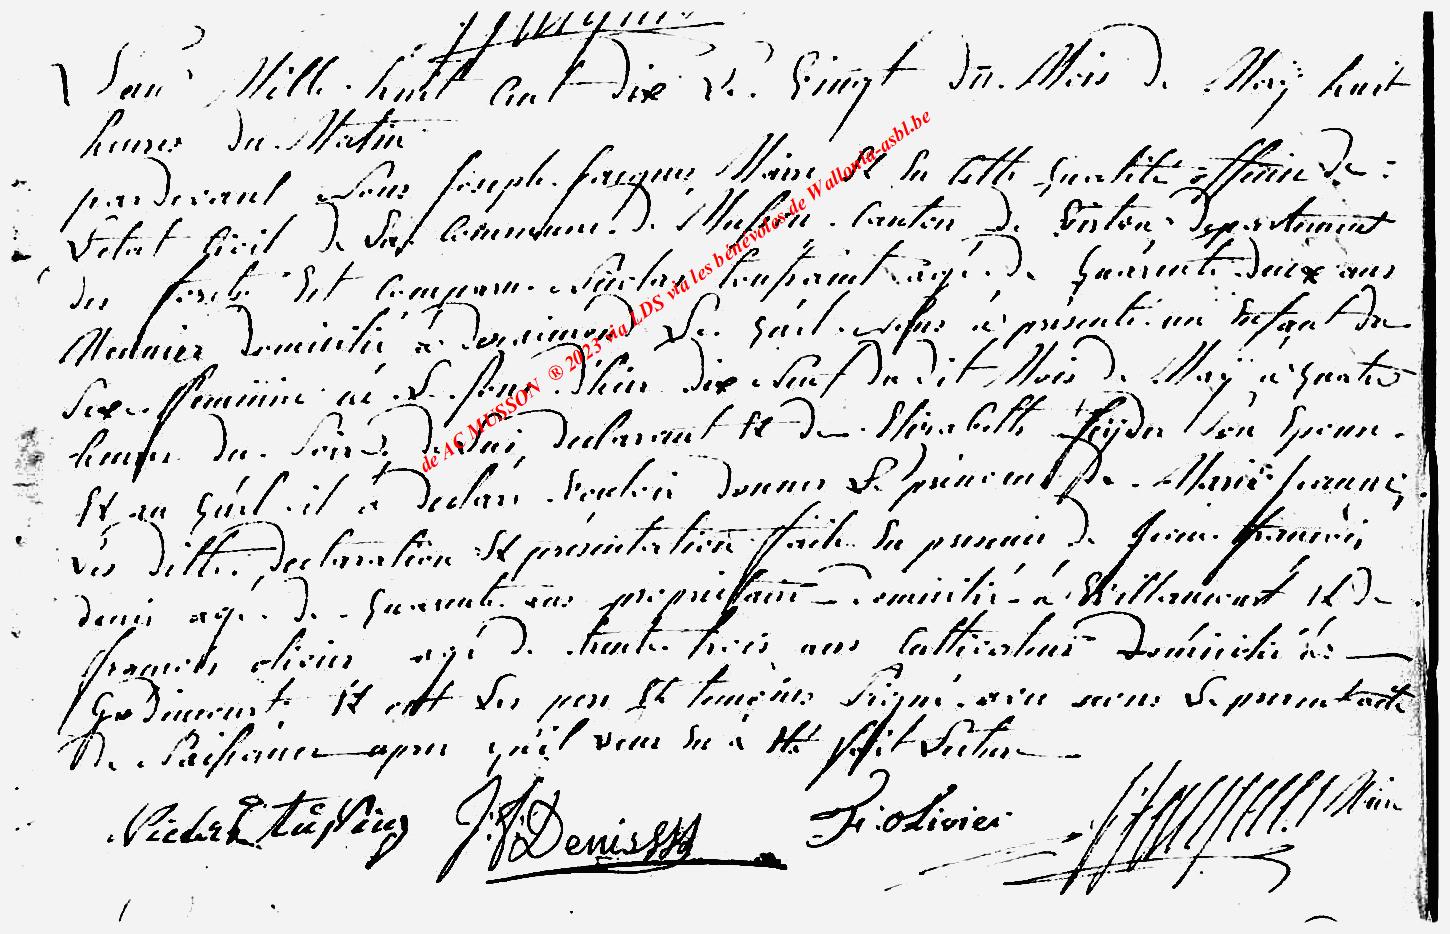 L'an Mille huit Cent dix Le Vingt du Mois de Maÿ huit
heures du Matin
pardevant Nous Joseph Jacques Maire Et En Cette qualité officier de
L'état Civil de La Commune de Musson Canton de Virton departement
des forets Est Comparu Nicolas toussaint agé de quarente deux ans
Meunier domicilié à Le quel Nous à présenté un Enfant du
Sexe feminin né Le jour d'hier dix Neuf du dit Mois de Maÿ à quatre
heures du Soire de lui declarant Et de Elizabeth Son Epouse
Et au quel il à declaré Vouloir donner Le prénom de Marie jeanne
Les dittes declaration Et présentation faite En presence de Jean françois
denis agé de quarente ans proprietaire domicilié à Willancourt Et de
françois olivier agé de trente trois ans Cultivateur domicilié à
Godincourt Et ont Les pere Et temoins Signé avec nous Le present acte
de Naissance apres qu'il leur En à été fait Lecture
Nicolas
J: f: Denis
F: olivier
Maire
de AC MUSSON ® 2023 via LDS via les bénévoles de Wallonia-asbl.be